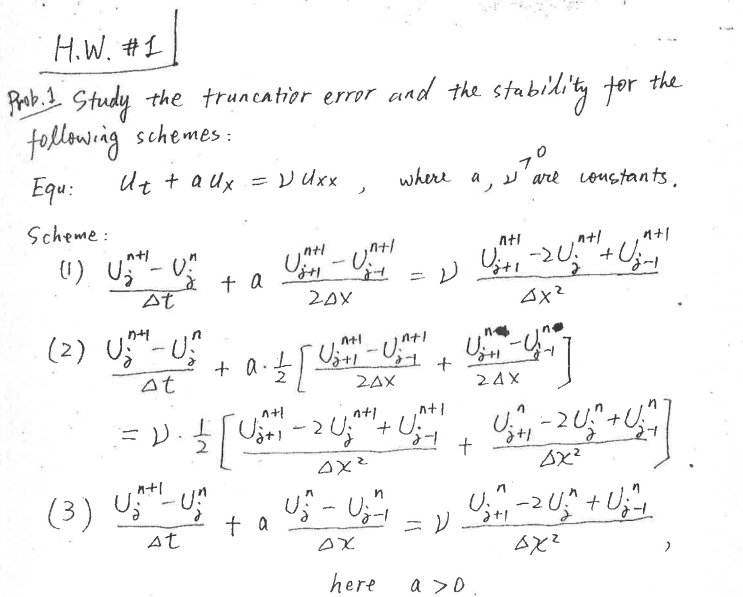 H.W. #1
Prob.1 Study the truncatior error and the stability for the
following schemes:
Equ: U_t + a U_x = ν U_xx , where a, ν^{>0} are constants.
Scheme:
(1) (U_j^{n+1} - U_j^n)/Δt + a (U_{j+1}^{n+1} - U_{j-1}^{n+1})/2Δx = ν (U_{j+1}^{n+1} - 2U_j^{n+1} + U_{j-1}^{n+1})/Δx²
(2) (U_j^{n+1} - U_j^n)/Δt + a·½[(U_{j+1}^{n+1} - U_{j-1}^{n+1})/2Δx + (U_{j+1}^n - U_{j-1}^n)/2Δx]
= ν·½[(U_{j+1}^{n+1} - 2U_j^{n+1} + U_{j-1}^{n+1})/Δx² + (U_{j+1}^n - 2U_j^n + U_{j-1}^n)/Δx²].
(3) (U_j^{n+1} - U_j^n)/Δt + a (U_j^n - U_{j-1}^n)/Δx = ν (U_{j+1}^n - 2U_j^n + U_{j-1}^n)/Δx²,
here a > 0.